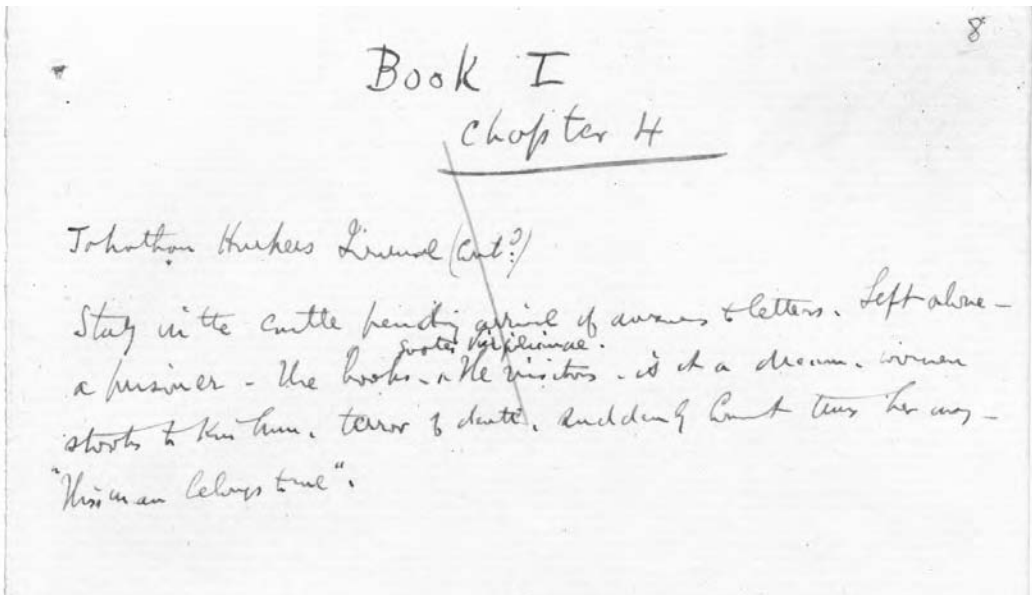 8
Book I
Chapter 4
Johathan Harkers Journal (cont?)
Stay in the castle pending arrival of answers to letters. Left alone -
quotes
a prisoner - the books - the visitors - is it a dream - women
stoops to kiss him. terror of death. suddenly Count turns her away -
"This man belongs to me".